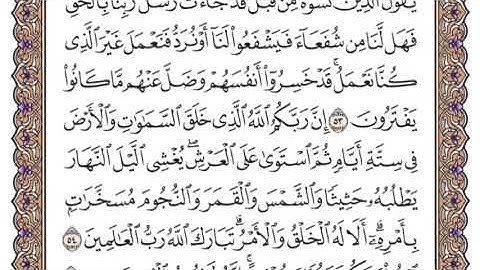 يَقُولُ ٱلَّذِينَ نَسُوهُ مِن قَبْلُ قَدْ جَآءَتْ رُسُلُ رَبِّنَا بِٱلْحَقِّ
فَهَل لَّنَا مِن شُفَعَآءَ فَيَشْفَعُوا۟ لَنَآ أَوْ نُرَدُّ فَنَعْمَلَ غَيْرَ ٱلَّذِى
كُنَّا نَعْمَلُ ۚ قَدْ خَسِرُوٓا۟ أَنفُسَهُمْ وَضَلَّ عَنْهُم مَّا كَانُوا۟
يَفْتَرُونَ ٥٣ إِنَّ رَبَّكُمُ ٱللَّهُ ٱلَّذِى خَلَقَ ٱلسَّمَٰوَٰتِ وَٱلْأَرْضَ
فِى سِتَّةِ أَيَّامٍ ثُمَّ ٱسْتَوَىٰ عَلَى ٱلْعَرْشِ ۖ يُغْشِى ٱلَّيْلَ ٱلنَّهَارَ
يَطْلُبُهُۥ حَثِيثًا وَٱلشَّمْسَ وَٱلْقَمَرَ وَٱلنُّجُومَ مُسَخَّرَٰتٍۭ
بِأَمْرِهِۦٓ ۗ أَلَا لَهُ ٱلْخَلْقُ وَٱلْأَمْرُ ۗ تَبَارَكَ ٱللَّهُ رَبُّ ٱلْعَٰلَمِينَ ٥٤